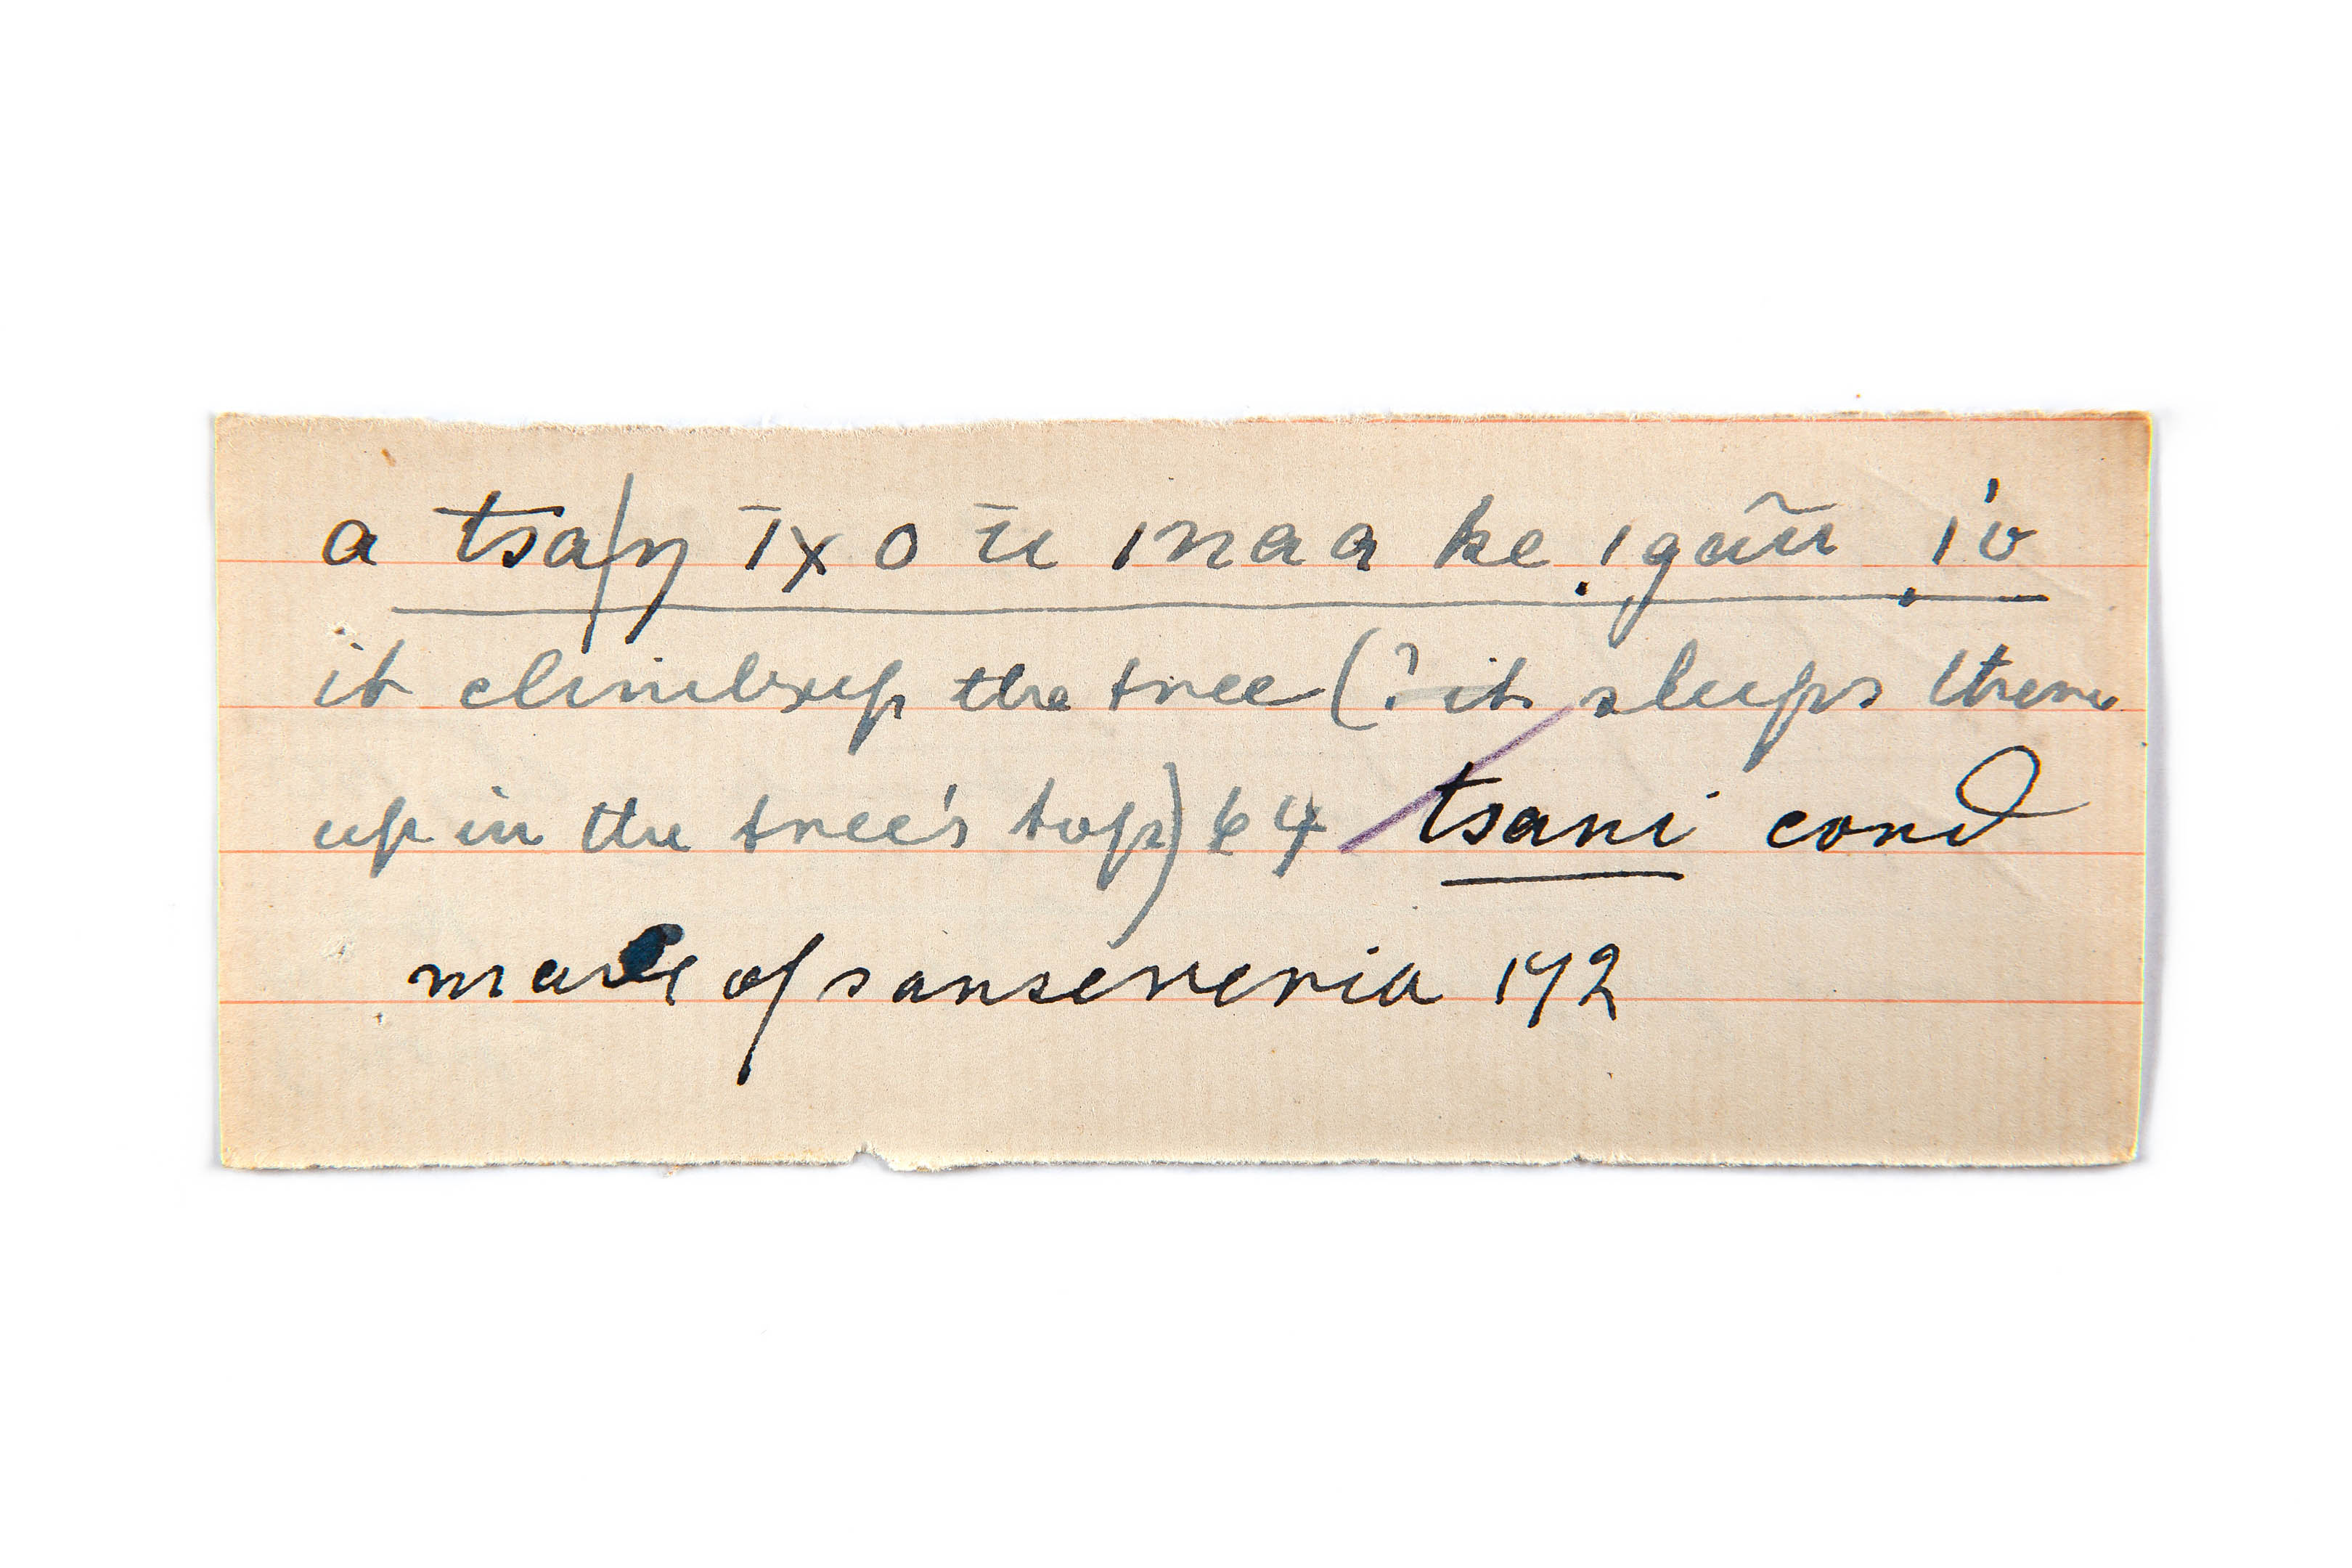 a tsa/ŋ īxo ū ınaa ke ̣ıgaũu ̣ı'o
it climbs up the tree (? it sleeps there
up in the tree's top) 64 tsani cord
made of sanseveria 172